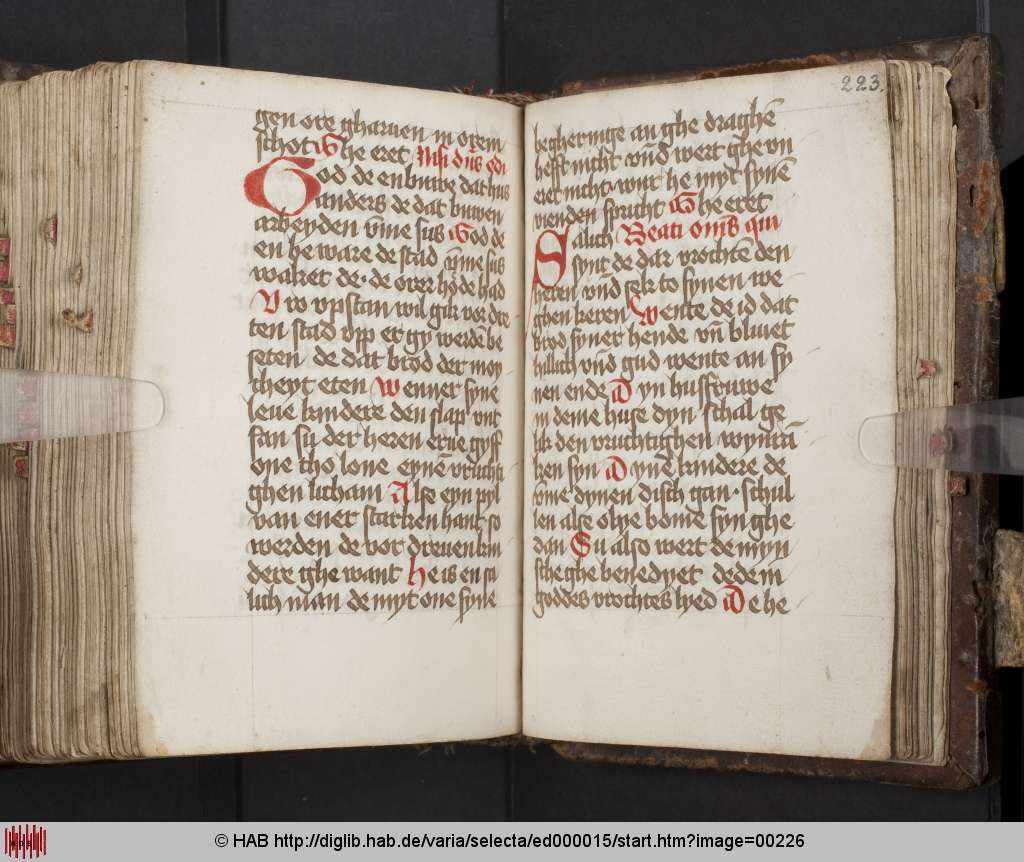 gen ore gharuen in orem
schot Ghe eret Nisi dn̄s edi
God de en buwe dat hus
anders de dat buwen
arbeyden v̄me sus God de
en be ware de stad v̄me sus
waket de · de ouer hōde had
Vw vpstan wil gik vor dre
ten stad vpp er gy werdē be
seten de dat brod der moy
cheyt eten Wenner syne
leue kindere den slap vnt
fan sü der heren erue gyff
one tho lone eynē vruchti
ghen licham Alse eyn pyl
van ener starken hant so
werden de vor dreuen kin
dere ghe want He is en sa
lich man de myt one syne
223.
begheringe an ghe draghē
hefft nicht vn̄d wert ghe vn
eret nicht wur he myt synē
vienden spricht Ghe eret
Salich Beati om̄s qui
synt de dar vrochtē den
heren vn̄d sek to synen we
ghen keren Wente de id dat
brod syner hende vn̄ bliuet
hillich vn̄d gud wente an sy
nen ende Dyn husfruwe
in deme huse dyn schal ge
lik den vruchtighen wynrā
ken syn Dynē kindere de
vme dynen disch gan · schul
len alse olye bome syn ghe
dan Su also wert de myn
sche ghe benedyet dede in
goddes vrochtes lyed De he
© HAB http://diglib.hab.de/varia/selecta/ed000015/start.htm?image=00226